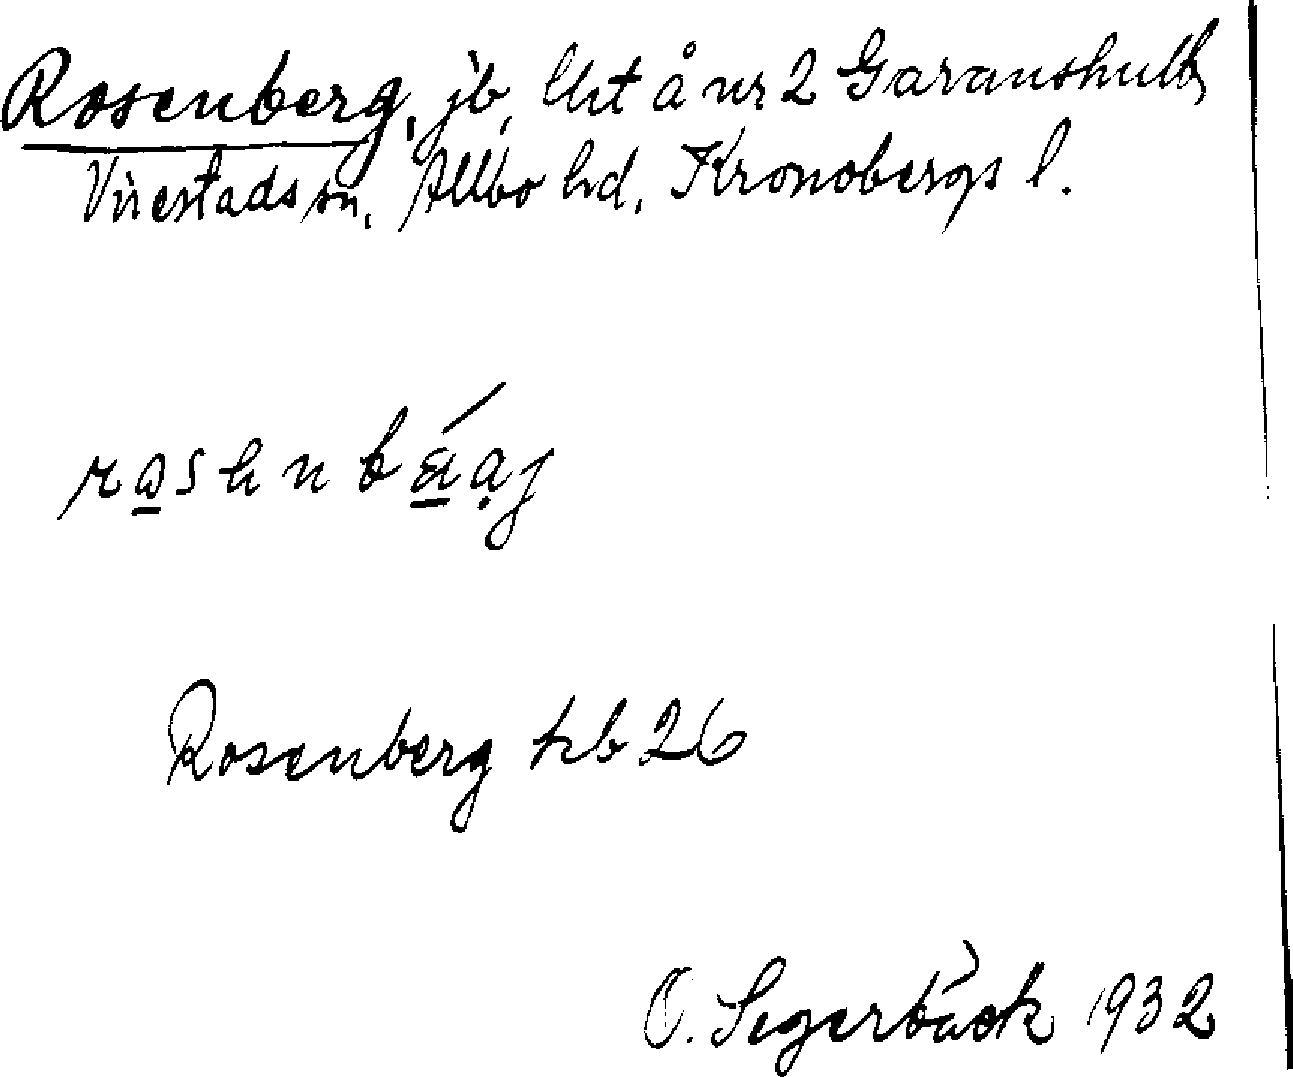 Rosenberg, jb, lht å nr 2 Garanshult,
Virestads sn, Allbo hd, Kronobergs l.
Rosenberg kb 26
O. Segerbäck 1932